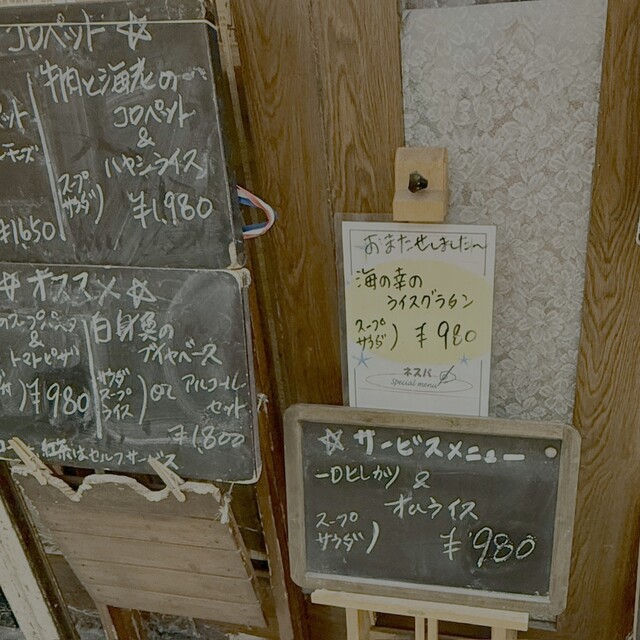 コロペット ☆
牛肉と海老の
コロペット
&
ハヤシライス
スープ
サラダ) ¥1,980
¥1650
オススメ ☆
&
トマトピザ
¥980
白身魚の
ブイヤベース
サラダ
スープ
ライス) or アルコール
セット
¥1,800
紅茶はセルフサービス
おまたせしました〜
海の幸の
ライスグラタン
スープ
サラダ) ¥980
ネスパ
Special menu
☆サービスメニュー
一口ヒレカツ &
オムライス
スープ
サラダ) ¥980